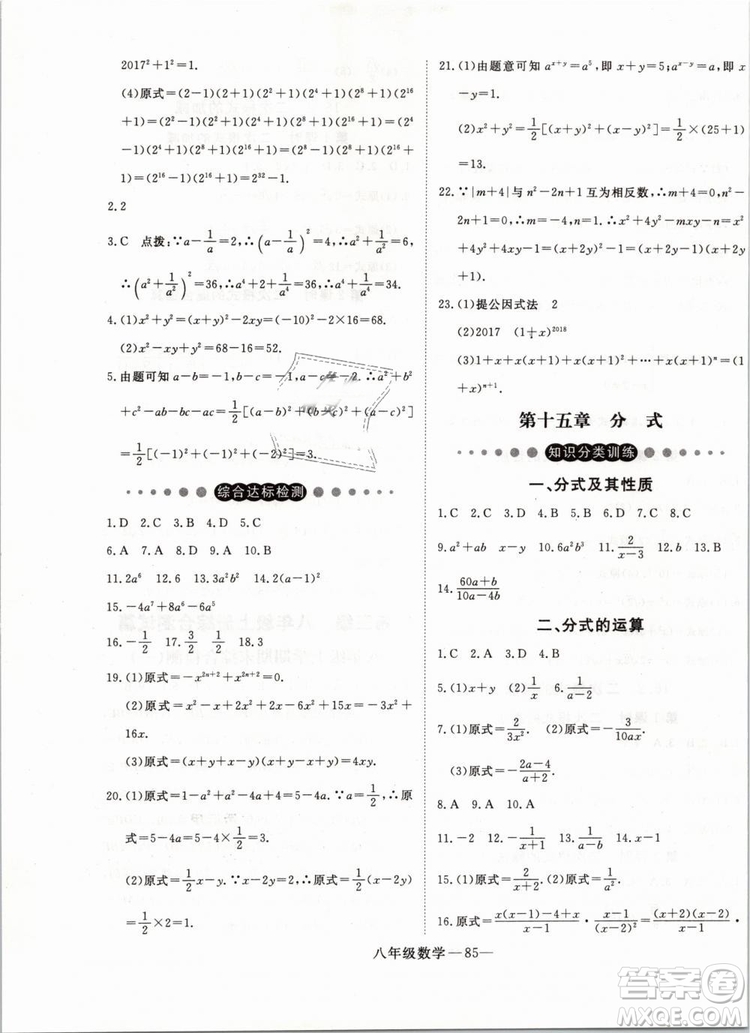 2017²+1²=1.
(4)原式=(2-1)(2+1)(2²+1)(2⁴+1)(2⁸+1)(2¹⁶
+1)=(2²-1)(2²+1)(2⁴+1)(2⁸+1)(2¹⁶+1)=(2⁴
-1)(2⁴+1)(2⁸+1)(2¹⁶+1)=(2⁸-1)(2⁸+1)(2¹⁶
+1)=(2¹⁶-1)(2¹⁶+1)=2³²-1.
2.2
3.C 点拨:∵a-1/a=2,∴(a-1/a)²=4,∴a²+1/a²=6,
∴(a²+1/a²)²=36,∴a⁴+2+1/a⁴=36,∴a⁴+1/a⁴=34.
4.(1)x²+y²=(x+y)²-2xy=(-10)²-2×16=68.
(2)x²-xy+y²=68-16=52.
5.由题可知a-b=-1,b-c=-1,a-c=-2.∴a²+b²
+c²-ab-bc-ca=1/2[(a-b)²+(b-c)²+(a-c)²]=
1/2[(-1)²+(-1)²+(-2)²]=3.
综合达标检测
1.D 2.C 3.C 4.D 5.C
6.A 7.A 8.A 9.D 10.C
11.2a⁶ 12.6 13.3 14.2a⁶
15.-4a⁷+4a⁵-8a⁴-6a³
16.-1/2 17.±1/2 18.3
19.(1)原式=-x²ⁿ⁺²+x²ⁿ⁺²=0.
(2)原式=4x-x³+2x²+2x-2x²-6x=-x³+4x²+
16x.
(3)原式=(x+y+x-y)(x+y-x+y)=4xy.
20.(1)原式=1-a²+a²-4a+4=5-4a.∵a=1/2,∴原
式=5-4a=5-4×1/2=3.
(2)原式=1/2x-y.∵x-2y=2,∴原式=1/2(x-2y)=
1/2×2=1.
21.(1)由题意可知aˣ⁺ʸ=a⁵,即x+y=5;aˣ⁻ʸ=a,即x
-y=1.
(2)x²+y²=1/2[(x+y)²+(x-y)²]=1/2×(25+1)
=13.
22.∵|m+4|与n²-2n+1互为相反数,∴|m+4|+n²-
2n+1=0,∴|m+4|+(n-1)²=0,∴m=-4,n=1.x²
+4y²+4xy-1=(x+2y)²-1=(x+2y-1)(x+2y+
1).
23.(1)提公因式法 2
(2)2017 (1+x)²⁰¹⁸
(3)1+x+x(x+1)+x(x+1)²+…+x(x+1)ⁿ=(1
+x)ⁿ⁺¹.
第十五章 分 式
知识分类训练
一、分式及其性质
9.a²+ab x-y 10.6a² 11.2/(x-3) 12.B 13.B
14.(60a+b)/(10a-4b)
二、分式的运算
1.C 2.A 3.D 4.B
5.(1)x+y (2)1/x 6.1/(a-b)
7.(1)原式=2/(3x²). (2)原式=-3/(10ax).
(3)原式=-(2a-4)/(a²+a).
8.A 9.A 10.A
15.(1)原式=1/(x+1). (2)原式=1/(a+2).
16.原式=x(x-1)/(x+1)·(x-1)/(x(x-2))=(x-1)²/((x+2)(x-2))·
八年级数学—85—
答案圈
MXQE.COM